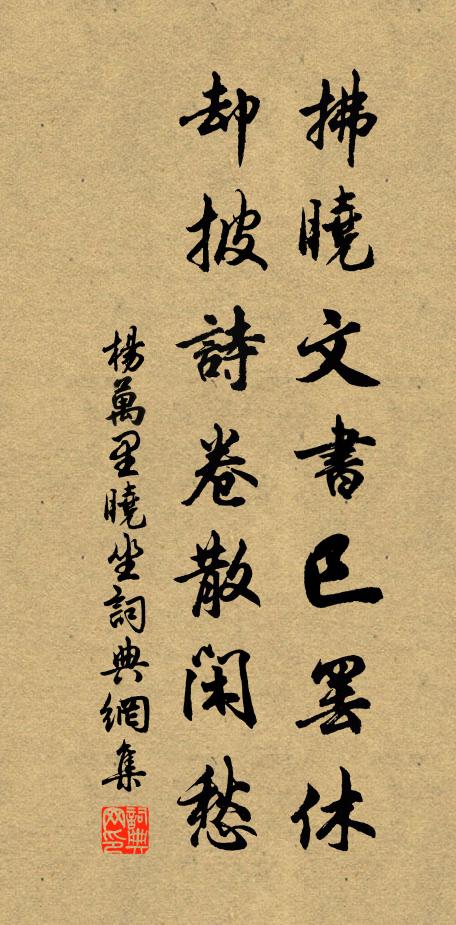 拂曉文書已罢休
却披詩卷散閑愁
楊萬里曉坐詞典網集
詞典网印